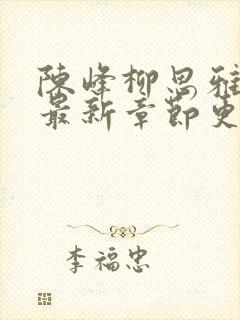 陳峰柳思雅
最新章節更
李福忠